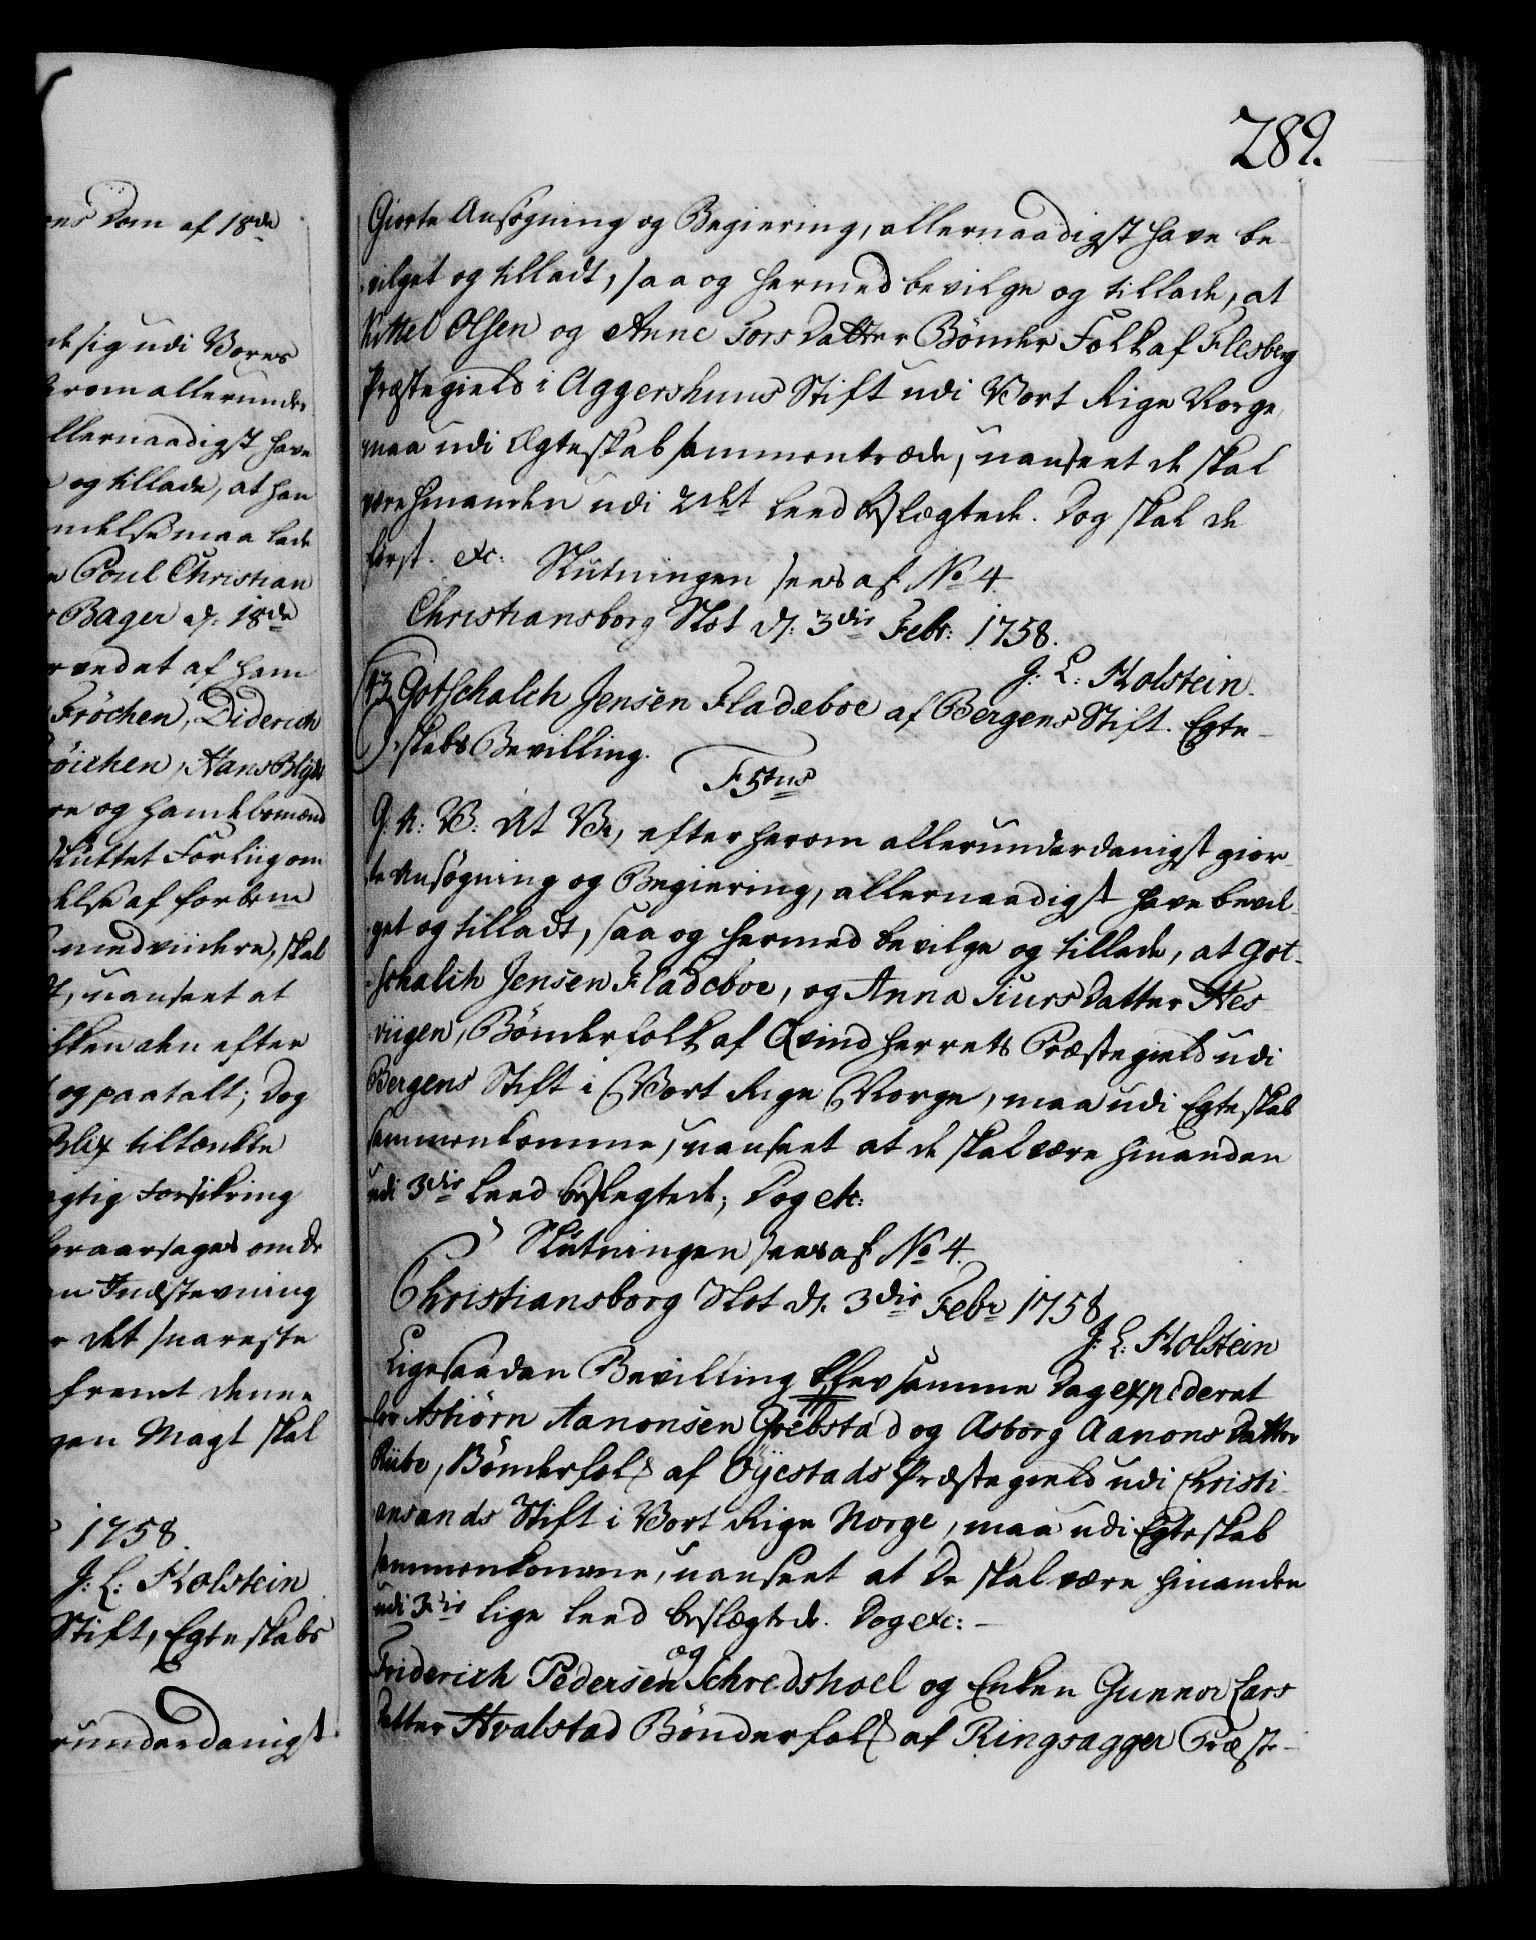 ens Dom af 18de
sig udi Vores
herom allerunder
llernaadigst have
og tillade, at han
maa lade
Poul Christian
Bager d: 18de
vedat af ham
Fröchen, Diderich
öichen, Hans Blyde
re og Handelsmænd
sluttet Forliig om
else af forbem
medviidere, skal
uanseet at
efter
og paatalt; Dog
Blix tiltænkte
gtig Forsikring
foraarsages om de
en Indstevning
det snareste
fremt denne
gen Magt skal
1758.
J: L: Holstein
Stift, Egteskabs
runderdanigst
289.
Giorte Ansøgning og Begiering, allernaadigst have be-
vilget og tilladt, saa og hermed bevilge og tillade, at
Kittel Olsen og Anne Tors Datter Bönder Folk af Flesberg
Præstegield i Aggershuus Stift udi Vort Rige Norge,
maa udi Ægteskab sammentræde, uanseet de skal
være hinanden udi 2det Leed beslægtede. Dog skal de
først. etc: Slutningen sees af No 4.
Christiansborg Slot d: 3die Febr: 1758.
J: L: Holstein.
43 Gotschalch Jensen Fladeboe af Bergens Stift. Egte-
skabs Bevilling.
F 5tus
G: A: V: At Vi, efter herom allerunderdanigst gior-
te Ansøgning og Begiering, allernaadigst have bevil-
get og tilladt, saa og hermed bevilge og tillade, at Got-
schalch Jensen Fladeboe, og Anna Siurs Datter Hes-
viigen, Bönderfolk af Qvindherrets Præstegield udi
Bergens Stift i Vort Rige Norge, maa udi Egteskab
sammenkomme, uanseet at de skal være hinanden
udi 3die Leed beslegtede; Dog etc:
Slutningen sees af No 4.
Christiansborg Slot d. 3die Febr 1758
J: L: Holstein
Ligesaadan Bevilling blev samme Dag expederet
for Asbiörn Aanonsen Grebstad og Asborg Aanons Datter
Bönderfolk af Öyestads Præstegield udi Christi-
ansands Stift i Vort Rige Norge, maa udi Egteskab
sammenkomme, uanseet at de skal være hinanden
udi 3die lige Leed beslægtede. Dog etc: -
Friderich Pedersen og Schredshoel og Enken Gunnor Lars
Datter Hvalstad Bönderfolk af Ringsagger Præste-